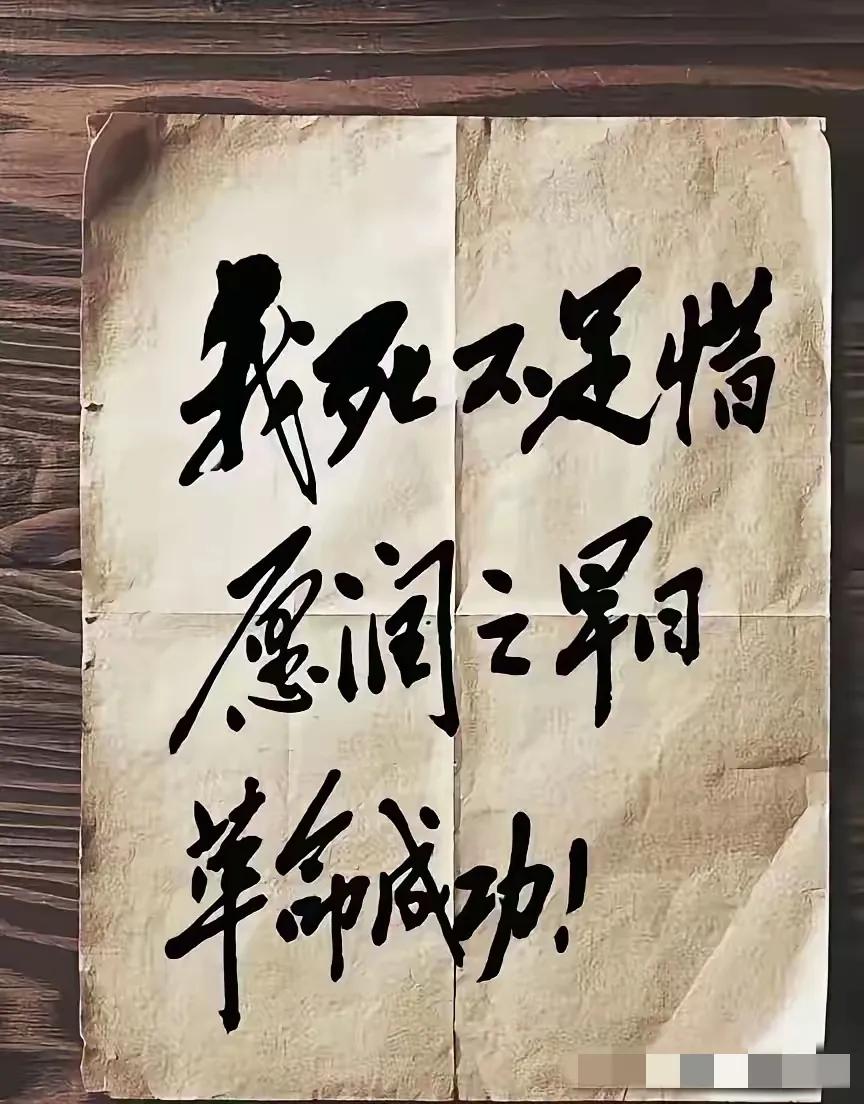 我死不足惜
愿润之早日
革命成功！